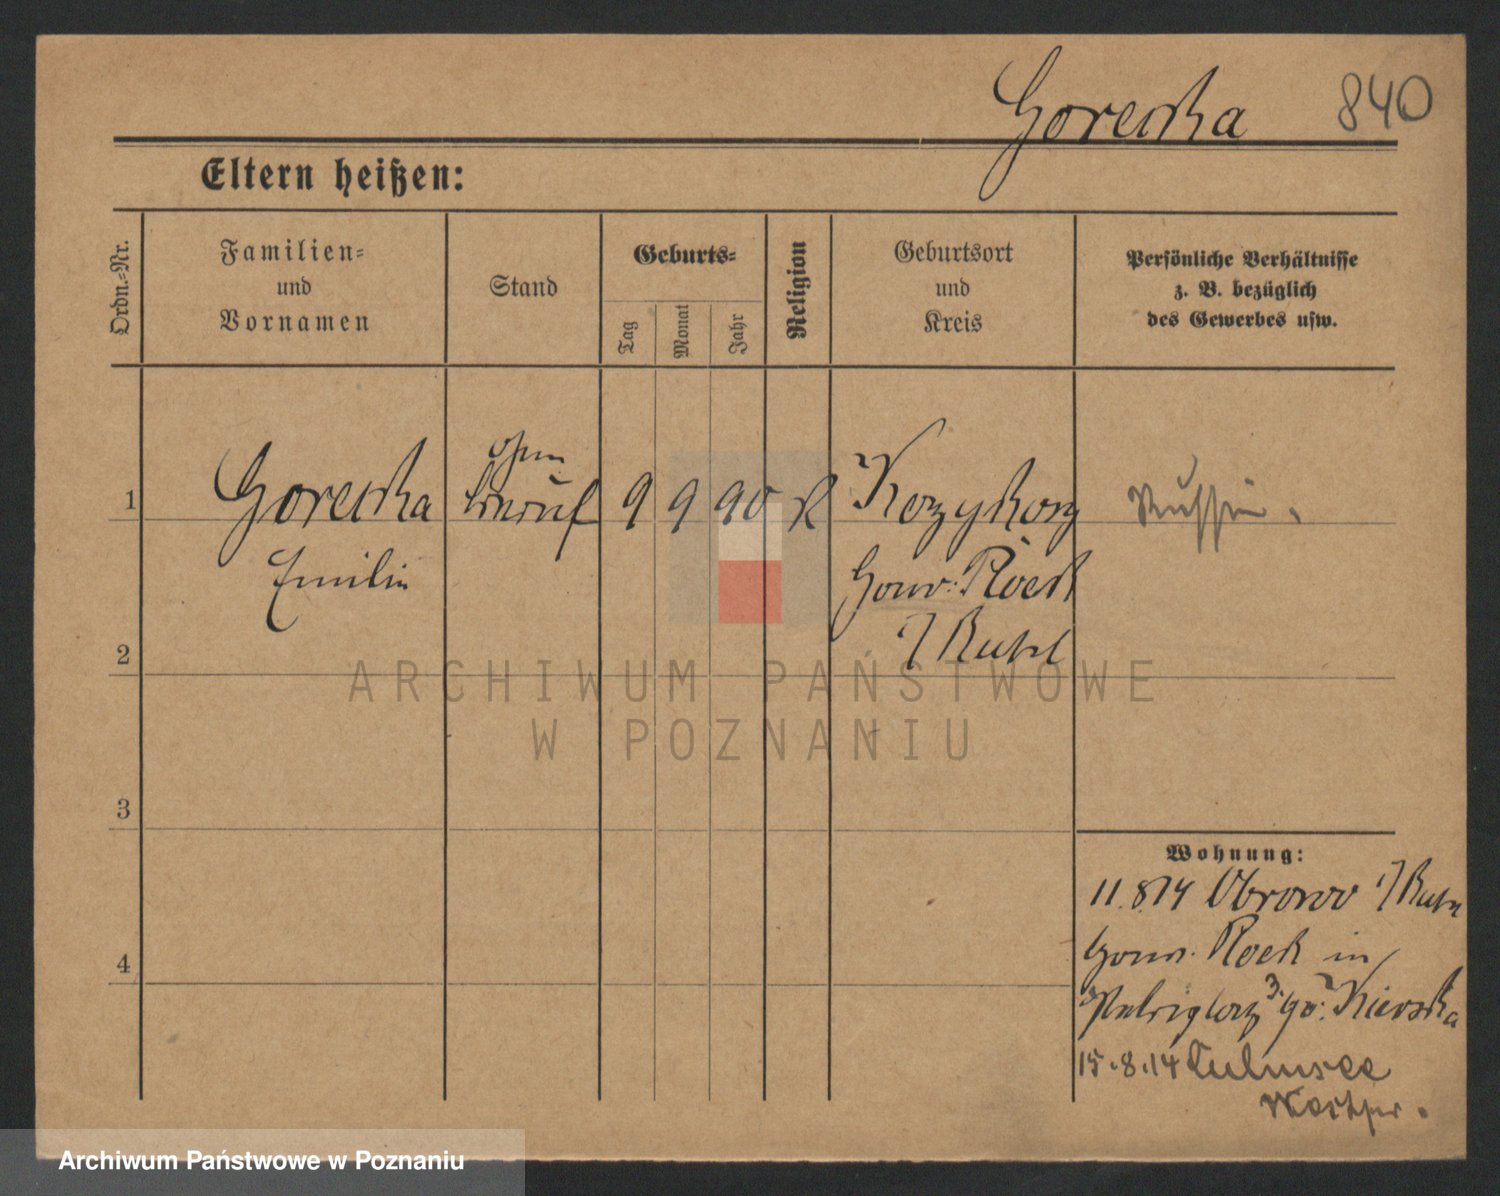 Gorecka 840
Eltern heißen:
Ordn.-Nr.
Familien-
und
Vornamen
Stand
Geburts-
Tag
Monat
Jahr
Religion
Geburtsort
und
Kreis
Persönliche Verhältnisse
z. B. bezüglich
des Gewerbes usw.
1 Gorecka ohne Beruf 9 9 90 K Russin.
Emilie
Gouv. Plock
2
3
4
Wohnung:
11.8.14
Gouv. Plock in
15.8.14 Culmsee
Westpr.
ARCHIWUM PAŃSTWOWE
W POZNANIU
Archiwum Państwowe w Poznaniu